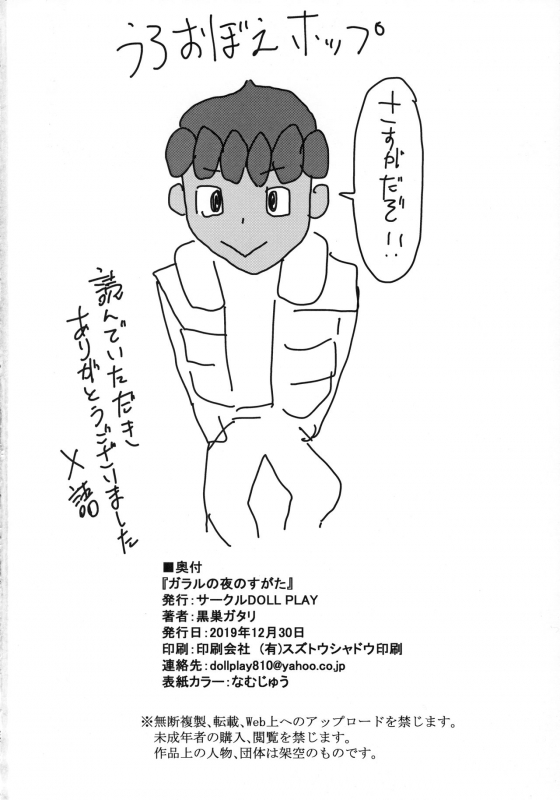 うろおぼえホップ
さすがだぞ!!
読んでいただき
ありがとうございました
■奥付
『ガラルの夜のすがた』
発行:サークルDOLL PLAY
著者:黒巣ガタリ
発行日:2019年12月30日
印刷:印刷会社 (有)スズトウシャドウ印刷
連絡先:dollplay810@yahoo.co.jp
表紙カラー:なむじゅう
※無断複製、転載、Web上へのアップロードを禁じます。
未成年者の購入、閲覧を禁じます。
作品上の人物、団体は架空のものです。